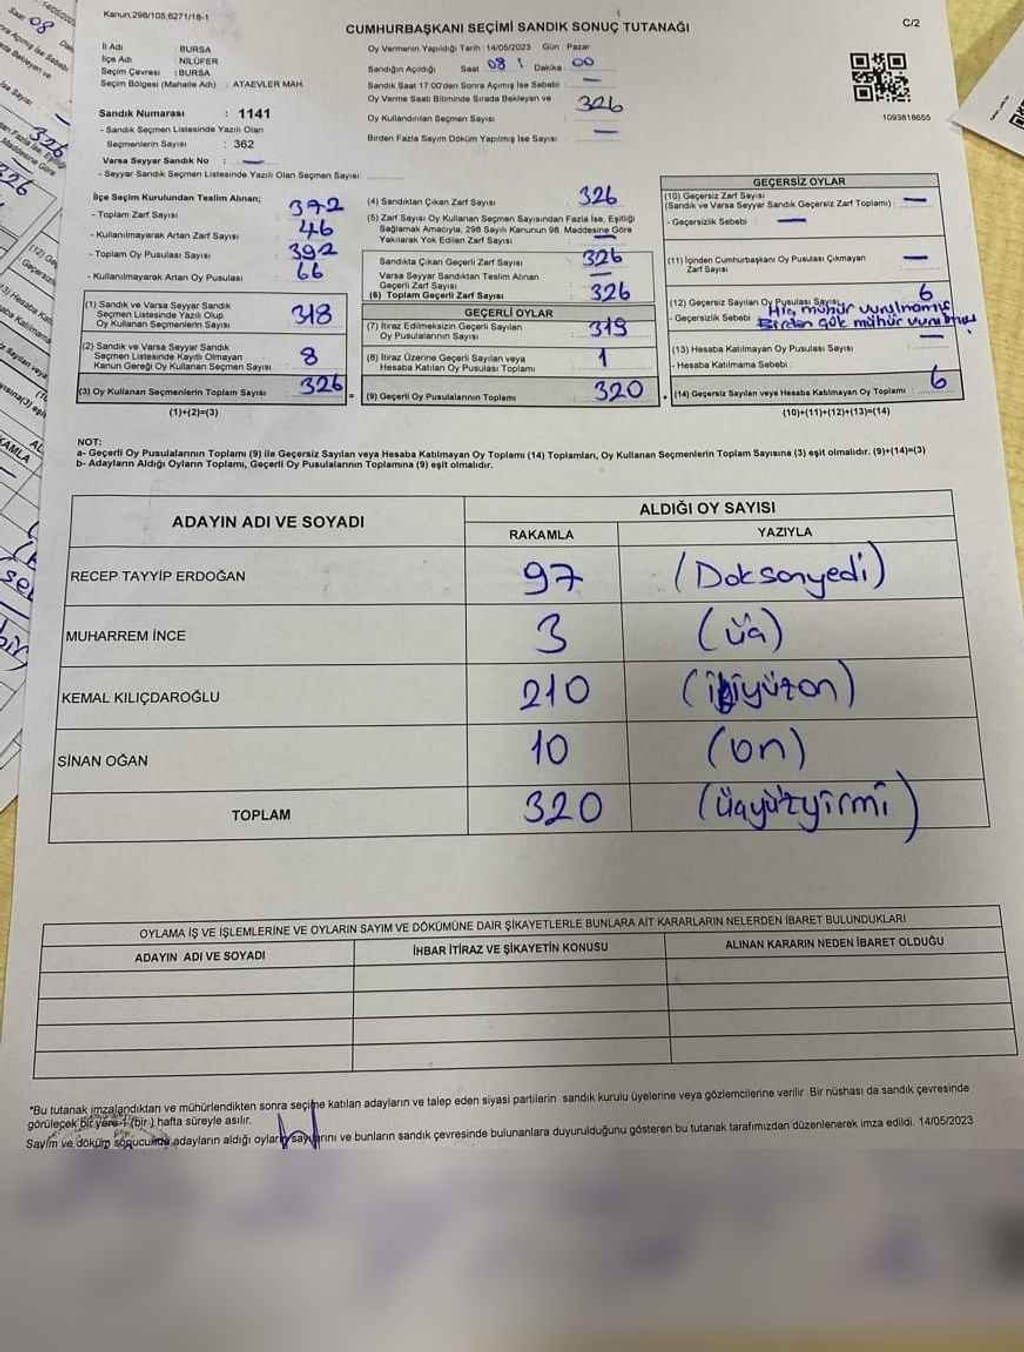 Kanun,298/105,6271/18-1
CUMHURBAŞKANI SEÇİMİ SANDIK SONUÇ TUTANAĞI
C/2
İl Adı BURSA
İlçe Adı NİLÜFER
Seçim Çevresi : BURSA
Seçim Bölgesi (Mahalle Adı) : ATAEVLER MAH.
Sandık Numarası : 1141
- Sandık Seçmen Listesinde Yazılı Olan
Seçmenlerin Sayısı : 362
Varsa Seyyar Sandık No : —
- Seyyar Sandık Seçmen Listesinde Yazılı Olan Seçmen Sayısı
Oy Vermenin Yapıldığı Tarih : 14/05/2023 Gün : Pazar
Sandığın Açıldığı Saat 08 : Dakika : 00
Sandık Saat 17:00'den Sonra Açılmış İse Sebebi —
Oy Verme Saati Bitiminde Sırada Bekleyen ve
Oy Kullandırılan Seçmen Sayısı 326
Birden Fazla Sayım Döküm Yapılmış İse Sayısı —
1093818655
İlçe Seçim Kurulundan Teslim Alınan;
- Toplam Zarf Sayısı 372
- Kullanılmayarak Artan Zarf Sayısı 46
- Toplam Oy Pusulası Sayısı 392
- Kullanılmayarak Artan Oy Pusulası 66
(1) Sandık ve Varsa Seyyar Sandık
Seçmen Listesinde Yazılı Olup
Oy Kullanan Seçmenlerin Sayısı 318
(2) Sandık ve Varsa Seyyar Sandık
Seçmen Listesinde Kayıtlı Olmayan
Kanun Gereği Oy Kullanan Seçmen Sayısı 8
(3) Oy Kullanan Seçmenlerin Toplam Sayısı 326
(1)+(2)=(3)
(4) Sandıktan Çıkan Zarf Sayısı 326
(5) Zarf Sayısı Oy Kullanan Seçmen Sayısından Fazla İse, Eşitliği
Sağlamak Amacıyla, 298 Sayılı Kanunun 98. Maddesine Göre
Yakılarak Yok Edilen Zarf Sayısı —
Sandıkta Çıkan Geçerli Zarf Sayısı 326
Varsa Seyyar Sandıktan Teslim Alınan
Geçerli Zarf Sayısı —
(6) Toplam Geçerli Zarf Sayısı 326
GEÇERLİ OYLAR
(7) İtiraz Edilmeksizin Geçerli Sayılan
Oy Pusulalarının Sayısı 319
(8) İtiraz Üzerine Geçerli Sayılan veya
Hesaba Katılan Oy Pusulası Toplamı 1
= (9) Geçerli Oy Pusulalarının Toplamı 320
GEÇERSİZ OYLAR
(10) Geçersiz Zarf Sayısı
(Sandık ve Varsa Seyyar Sandık Geçersiz Zarf Toplamı) —
- Geçersizlik Sebebi —
(11) İçinden Cumhurbaşkanı Oy Pusulası Çıkmayan
Zarf Sayısı —
(12) Geçersiz Sayılan Oy Pusulası Sayısı 6
- Geçersizlik Sebebi Hiç mühür vurulmamış
Birden çok mühür vurulmuş
(13) Hesaba Katılmayan Oy Pusulası Sayısı —
- Hesaba Katılmama Sebebi
+ (14) Geçersiz Sayılan veya Hesaba Katılmayan Oy Toplamı 6
(10)+(11)+(12)+(13)=(14)
NOT:
a- Geçerli Oy Pusulalarının Toplamı (9) ile Geçersiz Sayılan veya Hesaba Katılmayan Oy Toplamı (14) Toplamları, Oy Kullanan Seçmenlerin Toplam Sayısına (3) eşit olmalıdır. (9)+(14)=(3)
b- Adayların Aldığı Oyların Toplamı, Geçerli Oy Pusulalarının Toplamına (9) eşit olmalıdır.
ADAYIN ADI VE SOYADI
ALDIĞI OY SAYISI
RAKAMLA YAZIYLA
RECEP TAYYİP ERDOĞAN 97 (Doksanyedi)
MUHARREM İNCE 3 (üç)
KEMAL KILIÇDAROĞLU 210 (ikiyüzon)
SİNAN OĞAN 10 (on)
TOPLAM 320 (üçyüzyirmi)
OYLAMA İŞ VE İŞLEMLERİNE VE OYLARIN SAYIM VE DÖKÜMÜNE DAİR ŞİKAYETLERLE BUNLARA AİT KARARLARIN NELERDEN İBARET BULUNDUKLARI
ADAYIN ADI VE SOYADI İHBAR İTİRAZ VE ŞİKAYETİN KONUSU ALINAN KARARIN NEDEN İBARET OLDUĞU
*Bu tutanak imzalandıktan ve mühürlendikten sonra seçime katılan adayların ve talep eden siyasi partilerin sandık kurulu üyelerine veya gözlemcilerine verilir. Bir nüshası da sandık çevresinde
görülecek bir yere 1 (bir) hafta süreyle asılır.
Sayım ve döküm sonucunda adayların aldığı oyların sayılarını ve bunların sandık çevresinde bulunanlara duyurulduğunu gösteren bu tutanak tarafımızdan düzenlenerek imza edildi. 14/05/2023